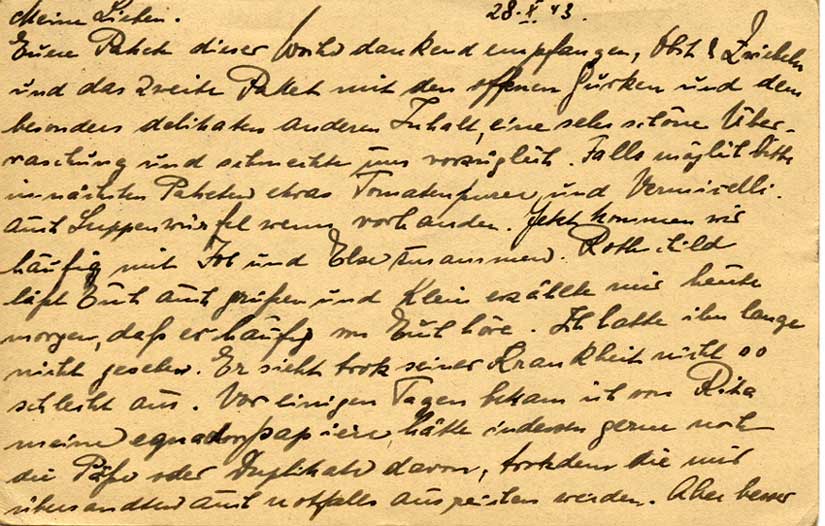 Meine Lieben. 28.X.43.
Eure Pakete dieser Woche dankend empfangen, Obst & Zwiebeln
und das zweite Paket mit den offenen Gurken und dem
besonders delikaten anderen Inhalt, eine sehr schöne Über-
raschung und schmeckte uns vorzüglich. Falls möglich bitte
in nächsten Paketen etwas Tomatenpuree und Vermicelli.
auch Suppenwürfel wenn vorhanden. Jetzt kommen wir
häufig mit und Else zusammen. Rothschild
läßt Euch auch grüßen und Klein erzählte mir heute
morgen, daß er häufig von Euch höre. Ich hatte ihn lange
nicht gesehen. Er sieht trotz seiner Krankheit nicht so
schlecht aus. Vor einigen Tagen bekam ich von Rita
meine equadorpapiere, hätte indessen gerne noch
die Päße oder Duplikate davon, trotzdem die mir
übersandten auch notfalls ausreichen werden. Aber besser